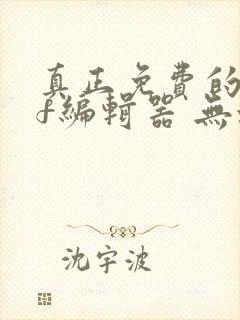 真正免費的
f編輯器 無
沈宇波